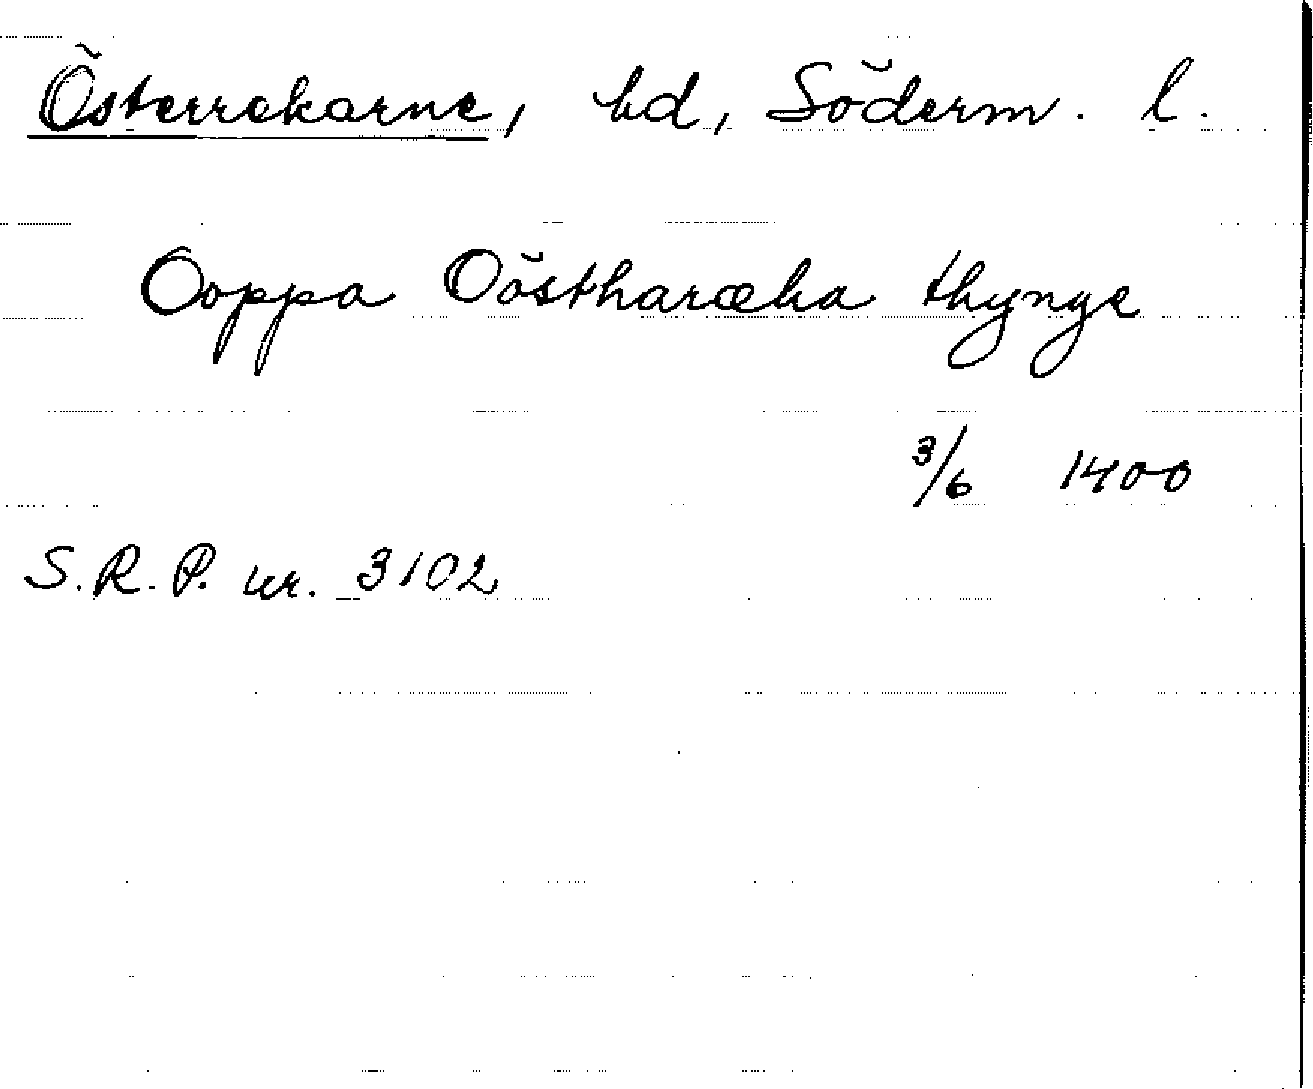 Österrekarne, hd, Söderm. l.
Ooppa Oöstharæka thynge
3/6 1400
S.R.P. nr. 3102